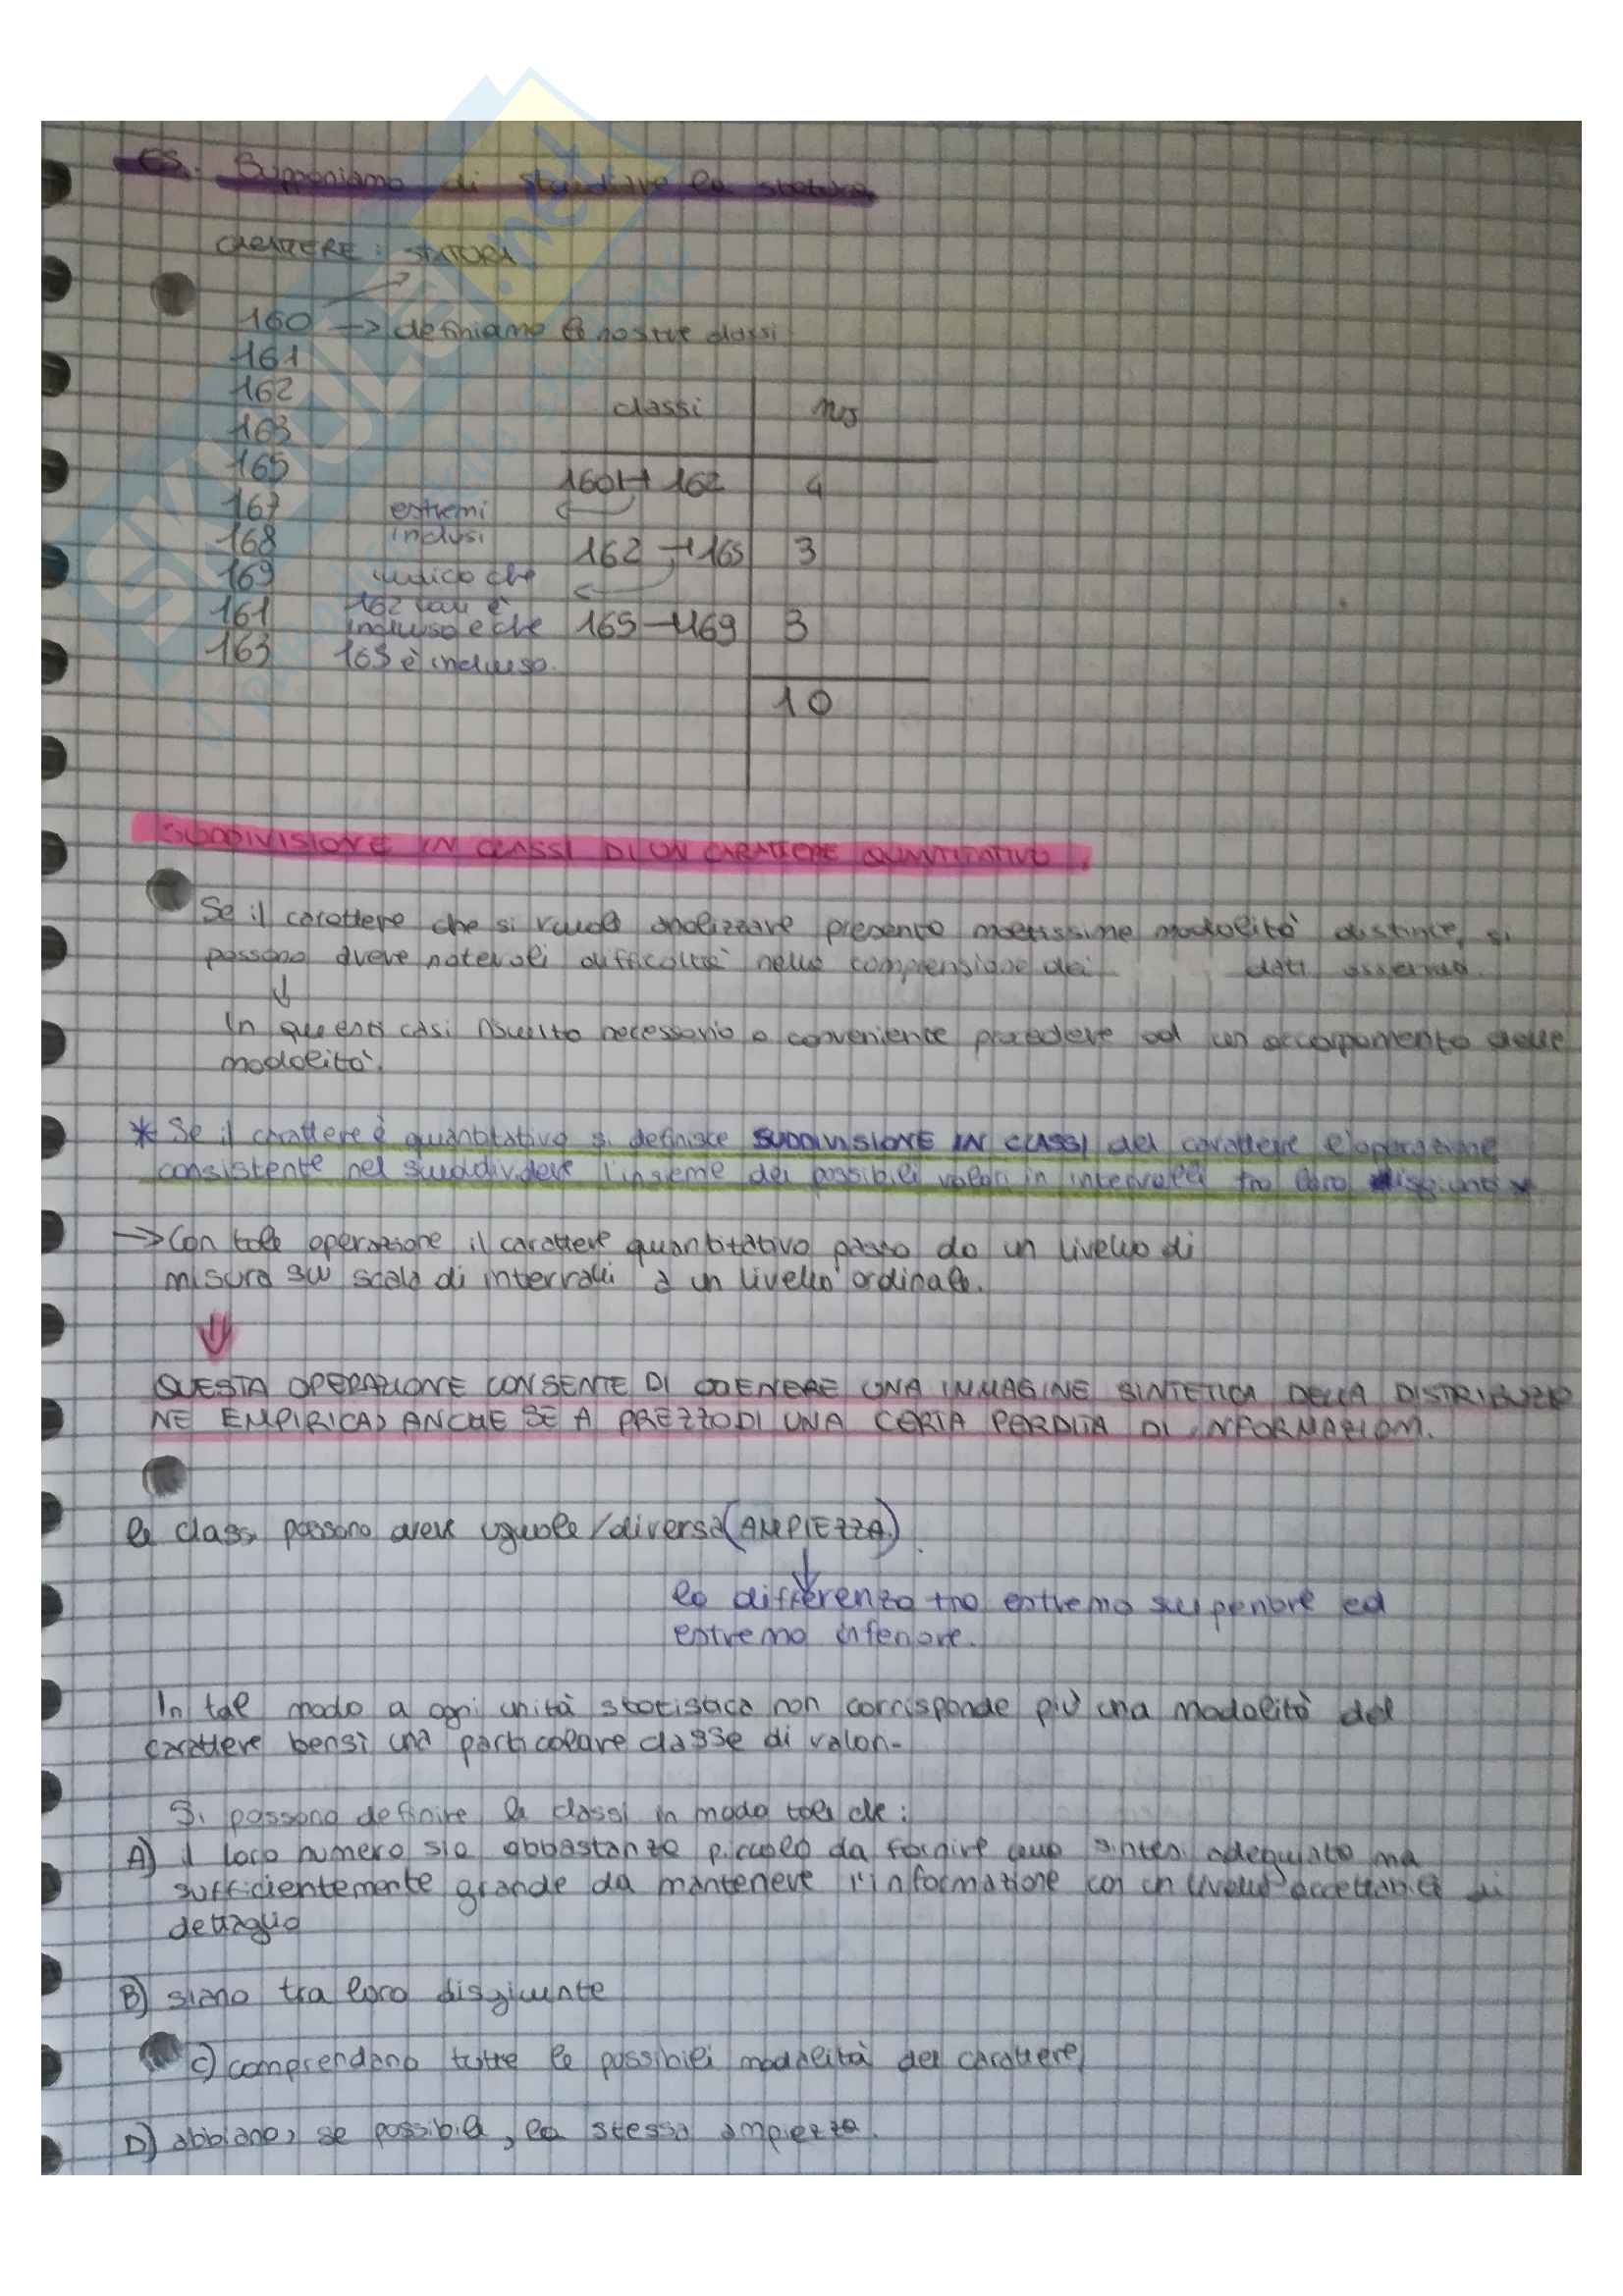 ES. Supponiamo di studiare la statura
CARATTERE: STATURA
160 → definiamo le nostre classi
161
162
163
165
167
168
169
161
163
classi nj
160 ⊢⊣ 162 4
162 ⊣ 165 3
165 ⊣ 169 3
10
estremi
inclusi
indico che
162 non è
incluso e che
165 è incluso.
SUDDIVISIONE IN CLASSI DI UN CARATTERE QUANTITATIVO.
Se il carattere che si vuole analizzare presenta moltissime modalità distinte, si
possono avere notevoli difficoltà nella comprensione dei dati osservati.
↓
In questi casi risulta necessario o conveniente procedere ad un accorpamento delle
modalità.
* Se il carattere è quantitativo si definisce SUDDIVISIONE IN CLASSI del carattere l'operazione
consistente nel suddividere l'insieme dei possibili valori in intervalli tra loro disgiunti *
→ Con tale operazione il carattere quantitativo passa da un livello di
misura su scala di intervalli a un livello ordinale.
⇓
QUESTA OPERAZIONE CONSENTE DI OTTENERE UNA IMMAGINE SINTETICA DELLA DISTRIBUZIO
NE EMPIRICA, ANCHE SE A PREZZO DI UNA CERTA PERDITA DI INFORMAZIONI.
le classi possono avere uguale/diversa (AMPIEZZA).
↓
la differenza tra estremo superiore ed
estremo inferiore.
In tal modo a ogni unità statistica non corrisponde più una modalità del
carattere bensì una particolare classe di valori.
Si possono definire le classi in modo tale che:
A) il loro numero sia abbastanza piccolo da fornire una sintesi adeguata ma
sufficientemente grande da mantenere l'informazione con un livello accettabile di
dettaglio
B) siano tra loro disgiunte
C) comprendano tutte le possibili modalità del carattere
D) abbiano, se possibile, la stessa ampiezza.